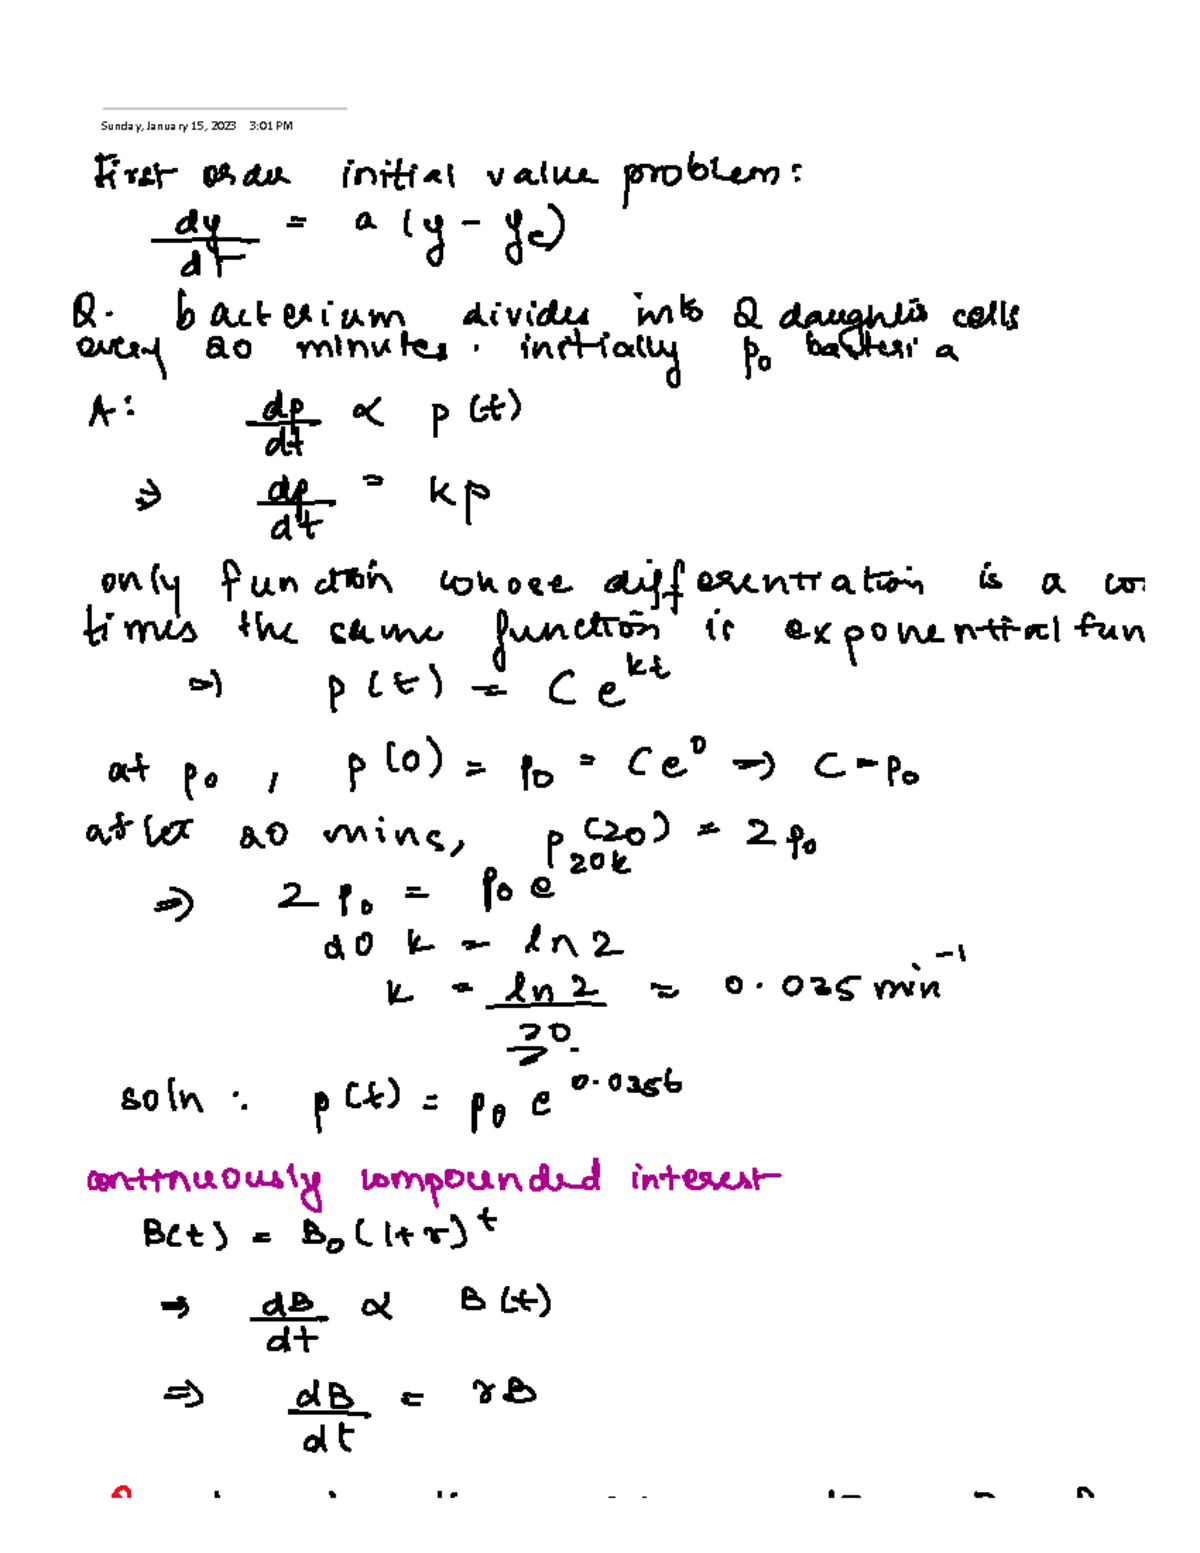 Sunday, January 15, 2023 3:01 PM
First order initial value problem:
dy/dt = a (y - yc)
Q. bacterium divides into 2 daughter cells
every 20 minutes. initially p₀ bacteria
A: dp/dt ∝ p(t)
⇒ dp/dt = kp
only function whose differentiation is a co
times the same function is exponential fun
⇒ p(t) = C e^{kt}
at p₀, p(0) = p₀ = Ce⁰ ⇒ C = p₀
after 20 mins, p(20) = 2p₀
⇒ 2p₀ = p₀ e^{20k}
20 k = ln 2
k = ln 2/20 = 0.035 min⁻¹
soln: p(t) = p₀ e^{0.035t}
continuously compounded interest
B(t) = B₀(1+r)^t
⇒ dB/dt ∝ B(t)
⇒ dB/dt = rB